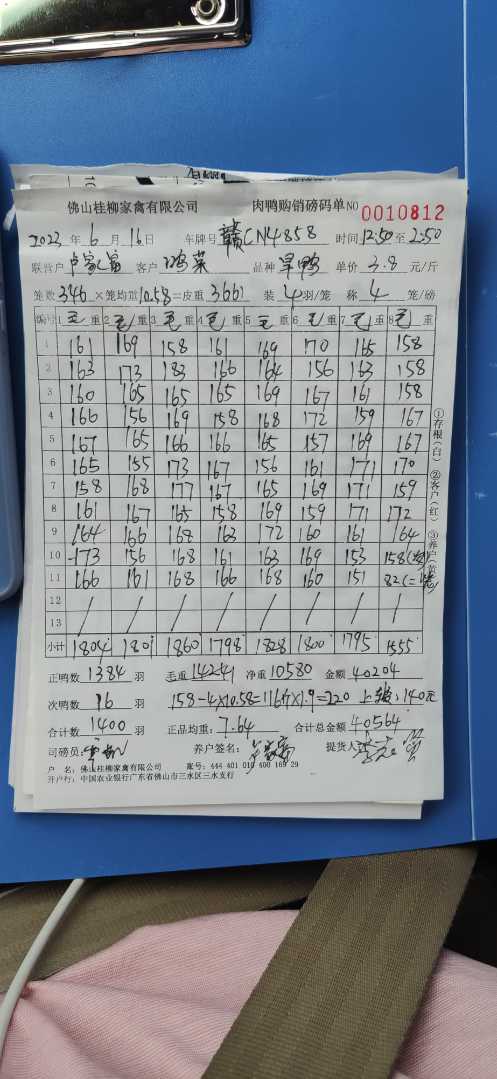 佛山桂柳家禽有限公司 肉鸭购销磅码单 NO 0010812
2023 年 6 月 16 日 车牌号 赣CN4858 时间 12:50 至 2:50
联营户 卢家富 客户 品种 旱鸭 单价 3.8 元/斤
笼数 346 ×笼均重 10.58 =皮重 3661 装 4 羽/笼 称 4 笼/磅
编号 1 毛 重 2 毛 重 3 毛 重 4 毛 重 5 毛 重 6 毛 重 7 毛 重 8 毛 重
1 161 169 158 161 169 170 165 158
2 163 173 183 166 164 156 163 158
3 160 165 165 165 169 167 161 158
4 166 156 169 158 168 172 159 167
5 167 165 166 166 165 157 169 167
6 165 155 173 167 156 161 171 170
7 158 168 177 167 165 169 171 159
8 161 167 165 158 169 159 171 172
9 164 166 168 163 172 160 161 164
10 173 156 168 161 163 169 153 158
11 166 161 168 166 168 160 151 82
12 / / / / / / / /
13 / / / / / / / /
小计 1804 1801 1860 1798 1828 1800 1795 1555
正鸭数 1384 羽 毛重 14241 净重 10580 金额 40204
次鸭数 16 羽 158-4×10.58=116斤×1.9=220 140元
合计数 1400 羽 正品均重: 7.64 合计总金额 40564
司磅员: 养户签名: 卢家富 提货人
户 名: 佛山桂柳家禽有限公司 账号: 444 401 010 400 169 29
开户行: 中国农业银行广东省佛山市三水区三水支行
①存根(白) ②客户(红) ③养户(黄)